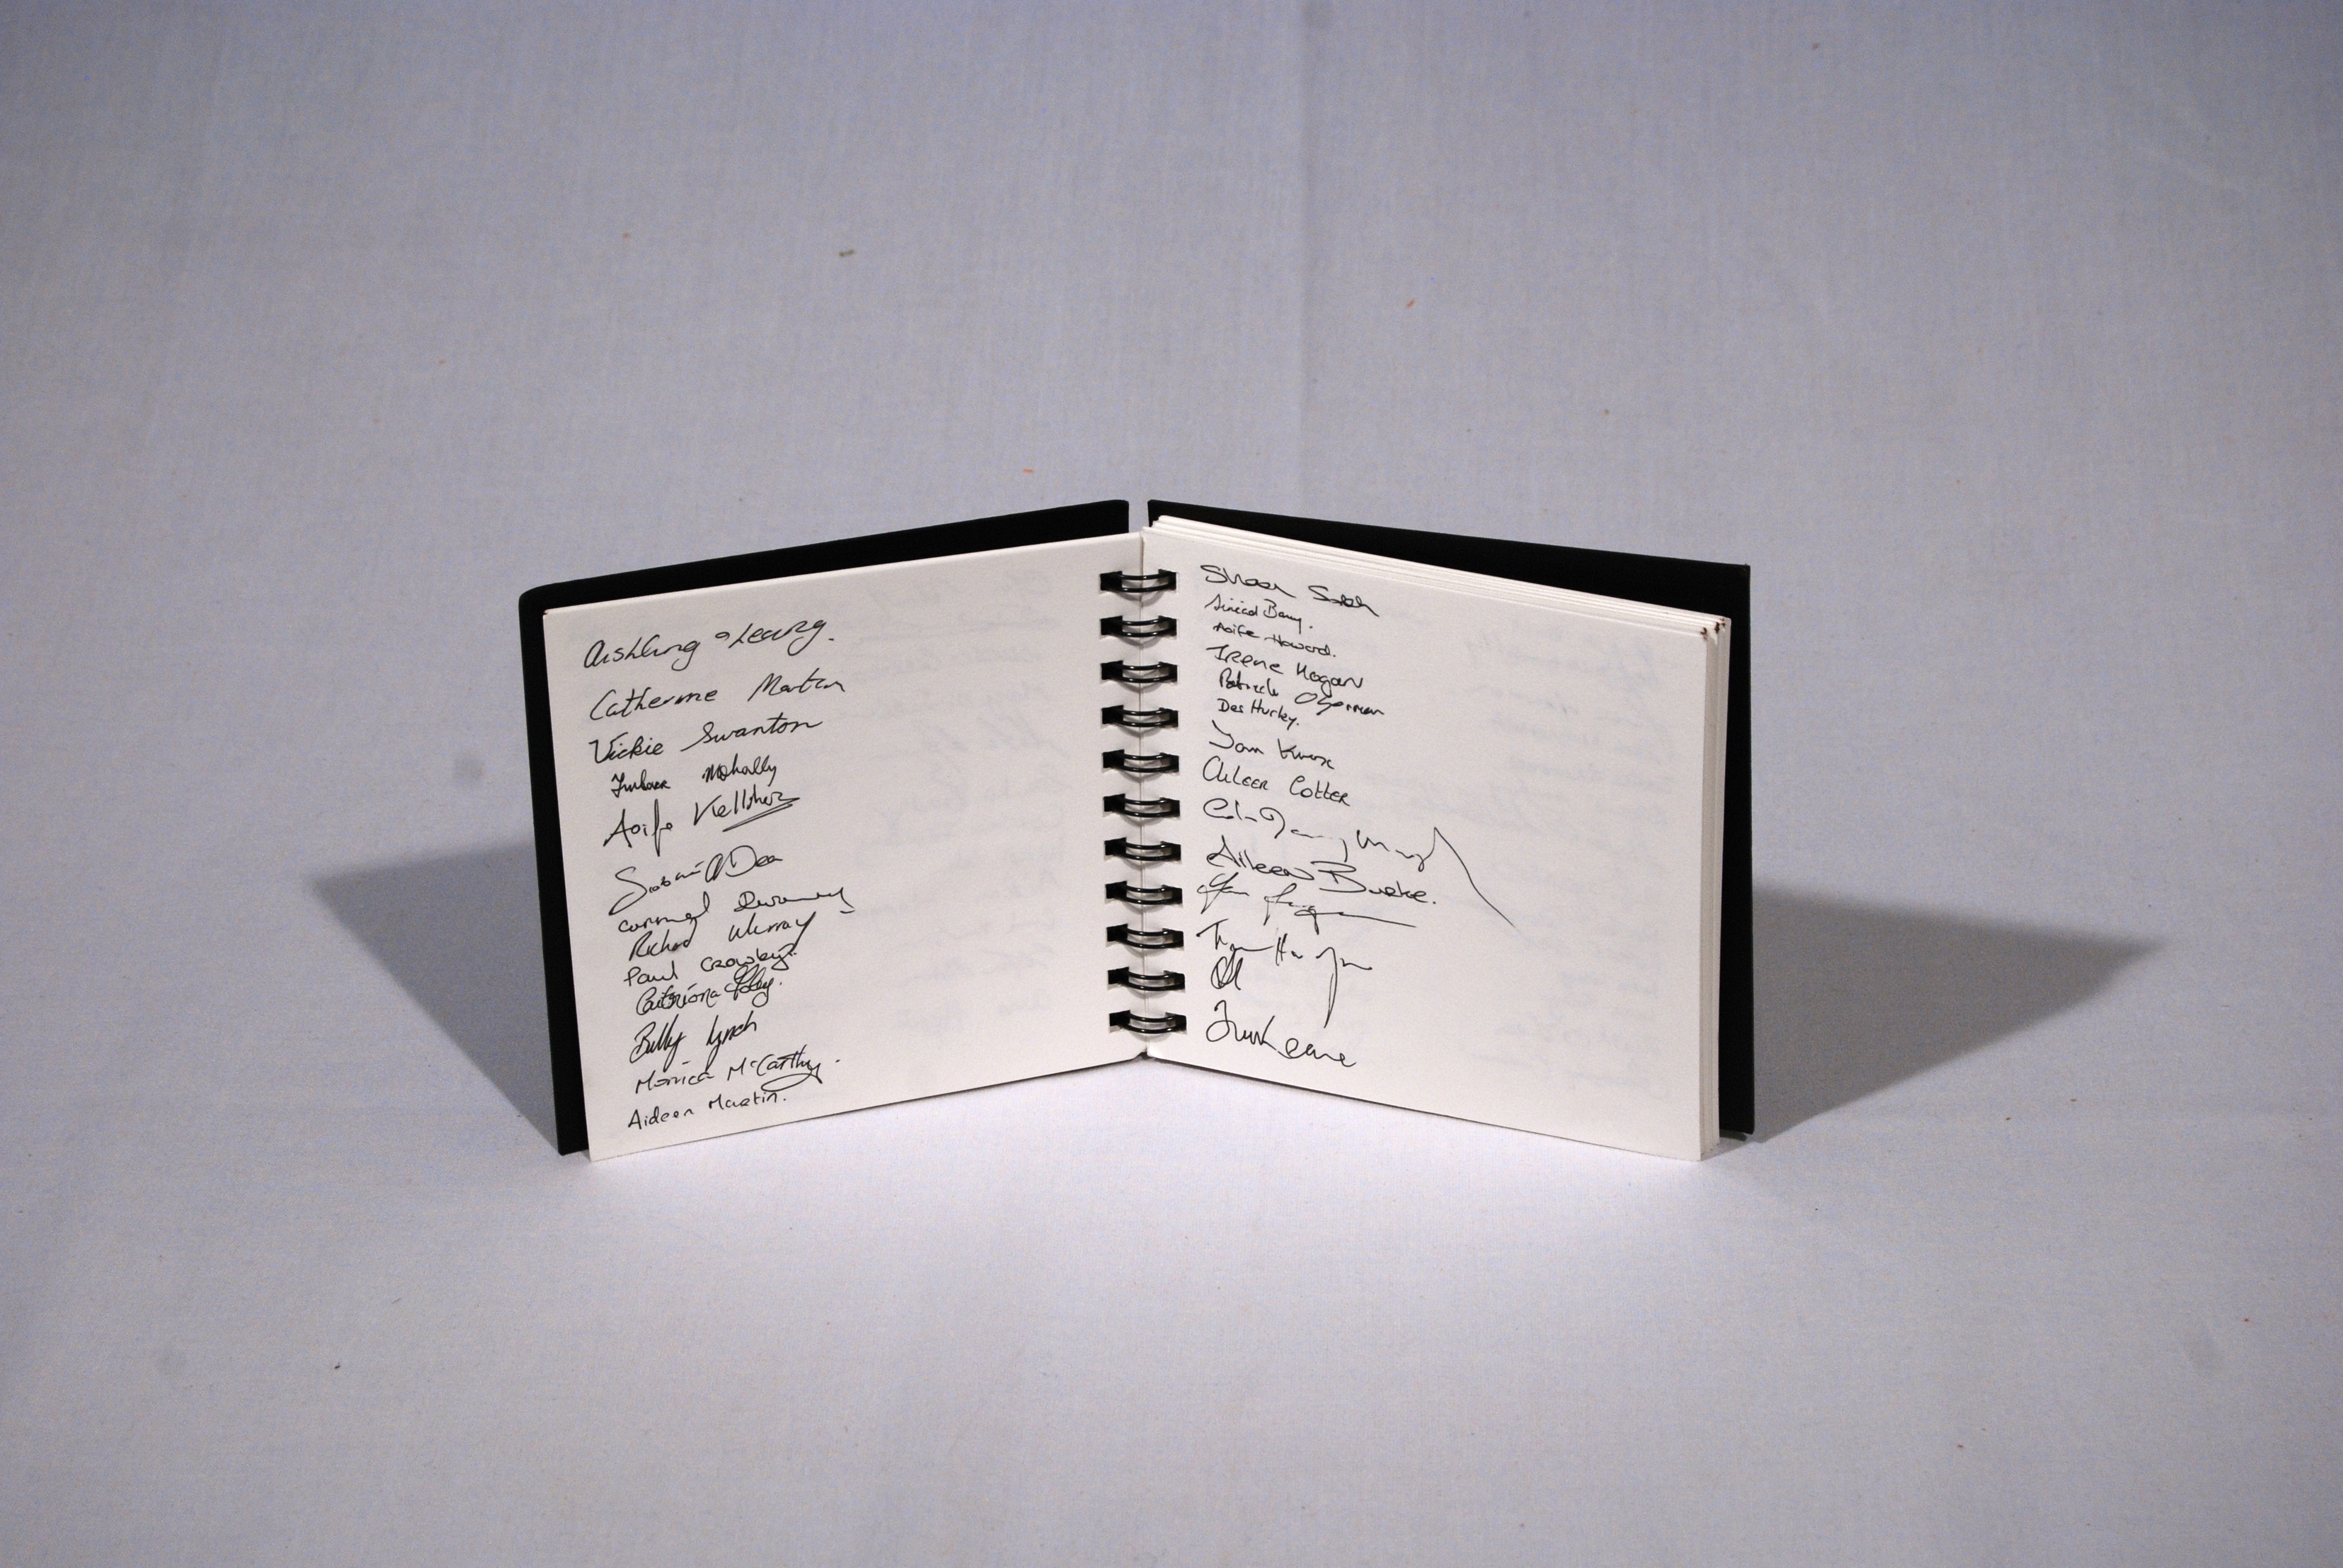 Aishling O'Leary.
Catherine Martin
Vickie Swanton
Mohally
Aoife Kelliher
O'Dea
Carmel
Richard Murray
Paul Crowley.
Caitriona Foley.
Billy Lynch
Monica McCarthy.
Aideen Martin.
Sinéad Barry.
Aoife Howard.
Irene Hogan
Patrick O'Gorman
Des Hurley.
Tom
Aileen Cotter
Aileen Burke.
Keane